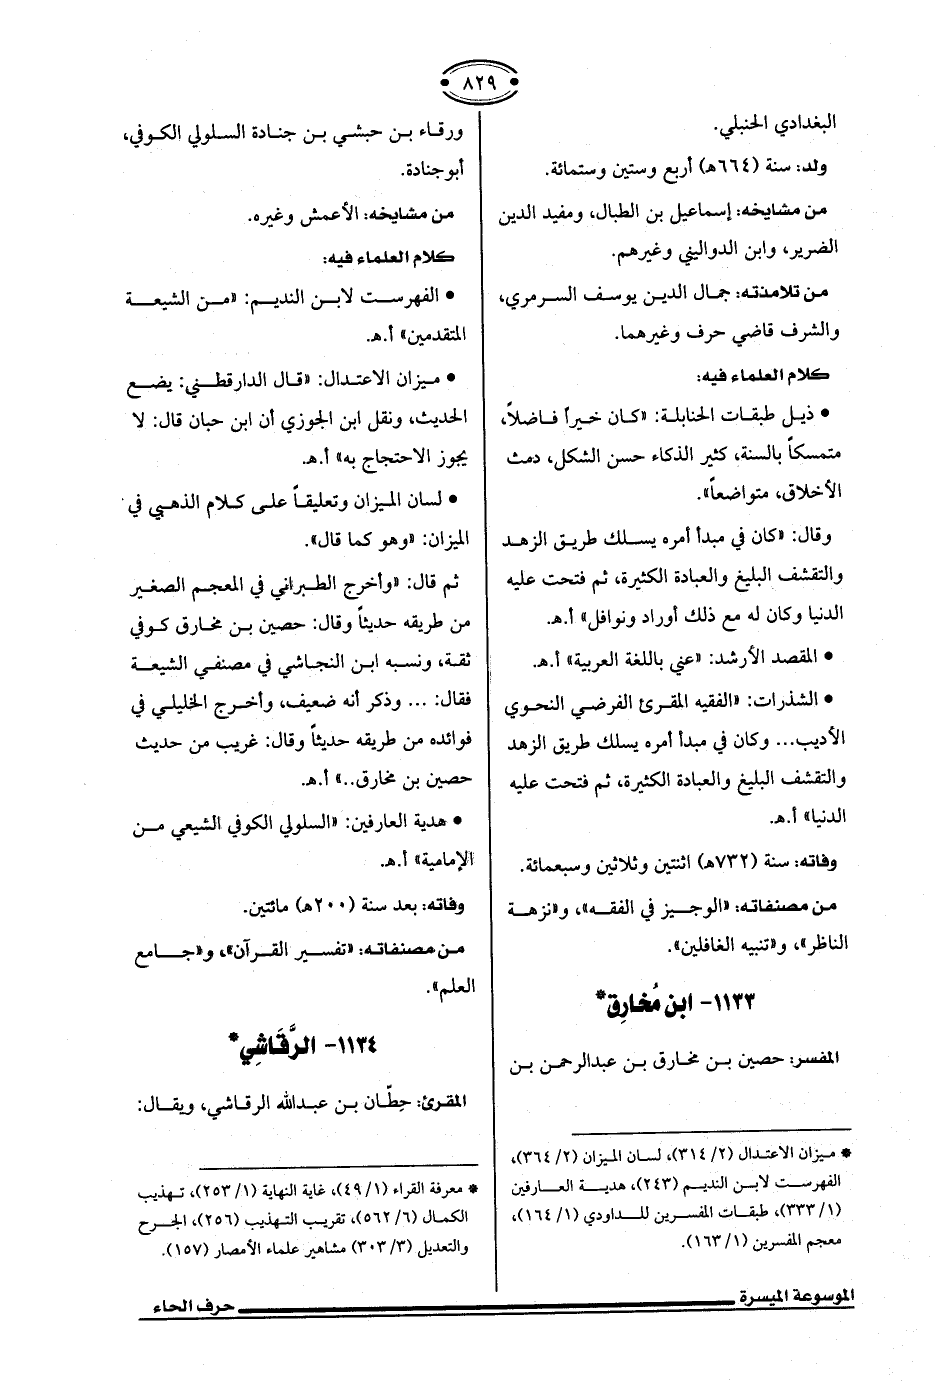 ٨٢٩
البغدادي الحنبلي.
ولد: سنة (٦٦٤هـ) أربع وستين وستمائة.
من مشايخه: إسماعيل بن الطبال، ومفيد الدين
الضرير، وابن الدواليني وغيرهم.
من تلامذته: جمال الدين يوسف السرمري،
والشرف قاضي حرف وغيرهما.
كلام العلماء فيه:
• ذيل طبقات الحنابلة: «كان خيراً فاضلاً،
متمسكاً بالسنة، كثير الذكاء حسن الشكل، دمث
الأخلاق، متواضعاً».
وقال: «كان في مبدأ أمره يسلك طريق الزهد
والتقشف البليغ والعبادة الكثيرة، ثم فتحت عليه
الدنيا وكان له مع ذلك أوراد ونوافل» أ.هـ.
• المقصد الأرشد: «عني باللغة العربية» أ.هـ.
• الشذرات: «الفقيه المقرئ الفرضي النحوي
الأديب... وكان في مبدأ أمره يسلك طريق الزهد
والتقشف البليغ والعبادة الكثيرة، ثم فتحت عليه
الدنيا» أ.هـ.
وفاته: سنة (٧٣٢هـ) اثنتين وثلاثين وسبعمائة.
من مصنفاته: «الوجيز في الفقه»، و«نزهة
الناظر»، و«تنبيه الغافلين».
١١٣٣- ابن مُخارِق*
المفسر: حصين بن مخارق بن عبدالرحمن بن
* ميزان الاعتدال (٢/ ٣١٤)، لسان الميزان (٢/ ٣٦٤)،
الفهرست لابن النديم (٢٤٣)، هدية العارفين
(١/ ٣٣٣)، طبقات المفسرين للداودي (١/ ١٦٤)،
معجم المفسرين (١/ ١٦٣).
ورقاء بن حبشي بن جنادة السلولي الكوفي،
أبو جنادة.
من مشايخه: الأعمش وغيره.
كلام العلماء فيه:
• الفهرست لابن النديم: «من الشيعة
المتقدمين» أ.هـ.
• ميزان الاعتدال: «قال الدارقطني: يضع
الحديث، ونقل ابن الجوزي أن ابن حبان قال: لا
يجوز الاحتجاج به» أ.هـ.
• لسان الميزان وتعليقاً على كلام الذهبي في
الميزان: «وهو كما قال».
ثم قال: «وأخرج الطبراني في المعجم الصغير
من طريقه حديثاً وقال: حصين بن مخارق كوفي
ثقة، ونسبه ابن النجاشي في مصنفي الشيعة
فقال: ... وذكر أنه ضعيف، وأخرج الخليلي في
فوائده من طريقه حديثاً وقال: غريب من حديث
حصين بن مخارق..» أ.هـ.
• هدية العارفين: «السلولي الكوفي الشيعي من
الإمامية» أ.هـ.
وفاته: بعد سنة (٢٠٠هـ) مائتين.
من مصنفاته: «تفسير القرآن»، و«جامع
العلم».
١١٣٤- الرَّقَاشِي*
المقرئ: حِطَّان بن عبدالله الرقاشي، ويقال:
* معرفة القراء (١/ ٤٩)، غاية النهاية (١/ ٢٥٣)، تهذيب
الكمال (٦/ ٥٦٢)، تقريب التهذيب (٢٥٦)، الجرح
والتعديل (٣/ ٣٠٣) مشاهير علماء الأمصار (١٥٧).
الموسوعة الميسرة
حرف الحاء